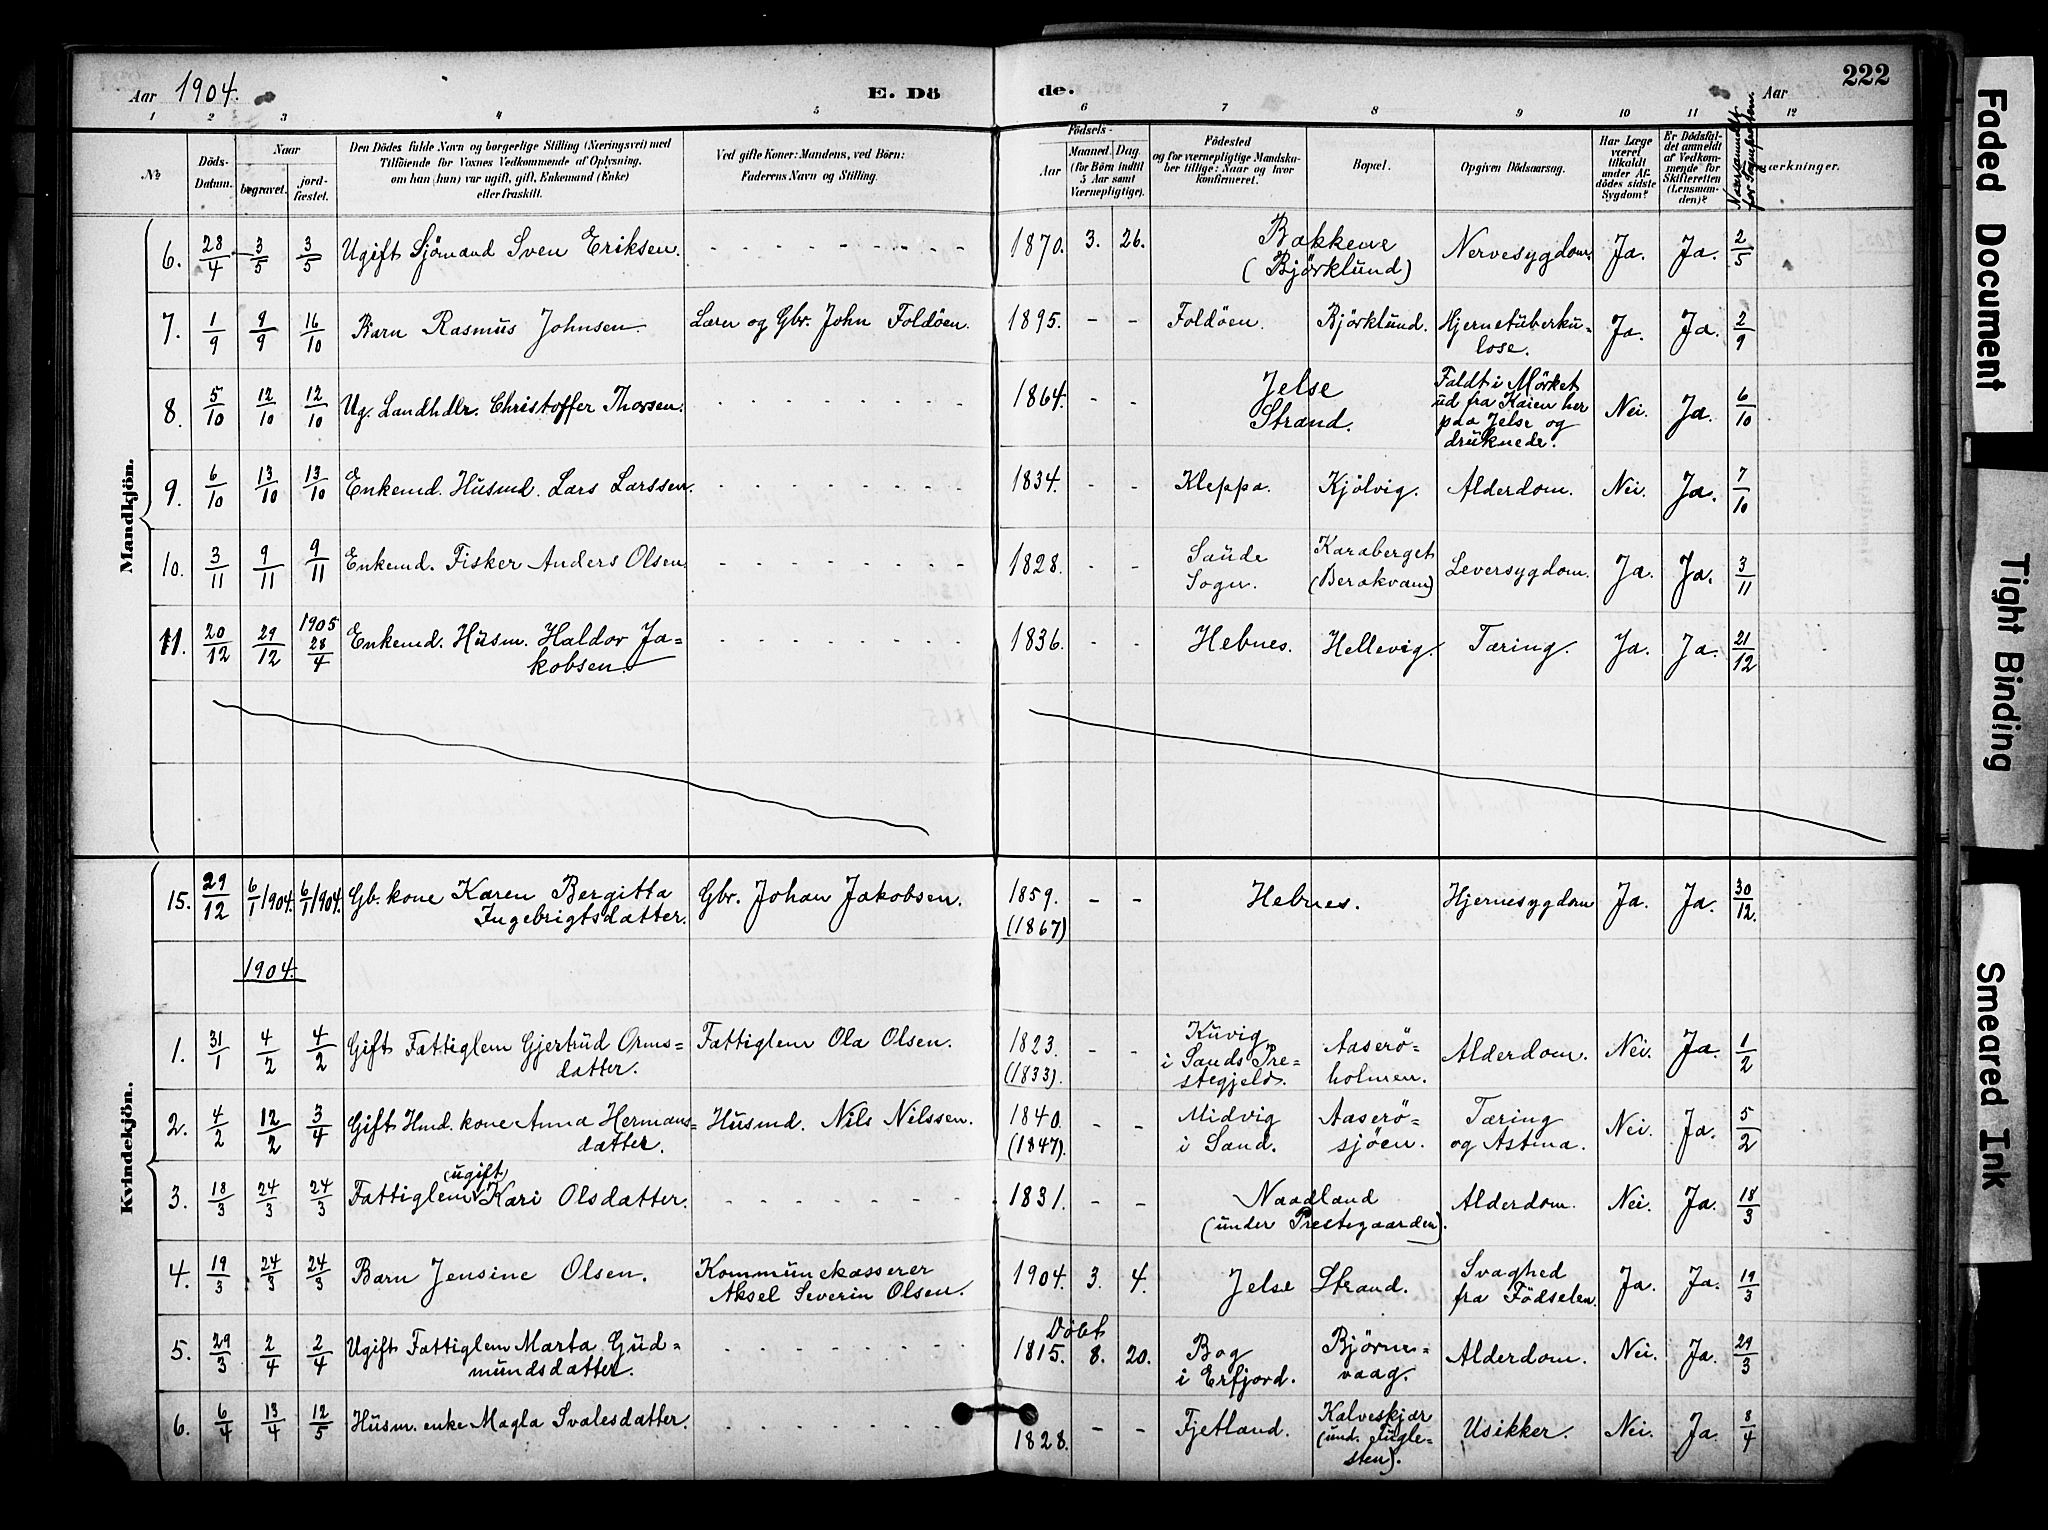 Aar 1904. E. Döde. Aar 222
1 2 3 4 5 6 7 8 9 10 11 12
No. Döds-Datum. Naar begravet. jordfæstet. Den Dödes fulde Navn og borgerlige Stilling (Næringsvei) med Tilföiende for Voxnes Vedkommende af Oplysning, om han (hun) var ugift, gift, Enkemand (Enke) eller fraskilt. Ved gifte Koner: Mandens, ved Börn: Faderens Navn og Stilling. Födsels- Aar Maaned. Dag. (for Börn indtil 5 Aar samt Værnepligtige). Födested og for værnepligtige Mandskaber tillige: Naar og hvor konfirmeret. Bopæl. Opgiven Dödsaarsag. Har Læge været tilkaldt under Afdödes sidste Sygdom? Er Dödsfaldet anmeldt af Vedkommende for Skifteretten (Lensmanden)? Anmærkninger.
Mandkjön.
6. 28/4 3/5 3/5 Ugift Sjömand Sven Eriksen. 1870. 3. 26. Bakkene (Björklund) Nervesygdom. Ja. Ja. 2/5
7. 1/9 9/9 16/10 Barn Rasmus Johnsen Lærer og Gbr. John Foldöen. 1895. - - Foldöen. Björklund. Hjernetuberkulose. Ja. Ja. 2/9
8. 5/10 12/10 12/10 Ug. Landhdlr. Christoffer Thorsen. 1864. - - Jelse Strand. Faldt i Mörket ud fra Kaien her paa Jelse og druknede. Nei. Ja. 6/10
9. 6/10 13/10 13/10 Enkemd. Husmd. Lars Larssen. 1834. - - Kleppa. Kjölvig. Alderdom. Nei. Ja. 7/10
10. 3/11 9/11 9/11 Enkemd. Fisker Anders Olsen 1828. - - Saude Sogn. Karaberget (Berakvam) Leversygdom. Ja. Ja. 3/11
11. 20/12 29/12 1905 28/4 Enkemd. Husm. Haldor Jakobsen. 1836. - - Hebnes. Hellevig. Tæring. Ja. Ja. 21/12
Kvindekjön.
15. 29/12 6/1 1904. 6/1 1904. Gb. kone Karen Bergitta Ingebrigtsdatter. Gbr. Johan Jakobsen. 1859. (1867) - - Hebnes. Hjernesygdom Ja. Ja. 30/12.
1904.
1. 31/1 4/2 4/2 Gift Fattiglem Gjertrud Ormsdatter. Fattiglem Ola Olsen. 1823. (1833). - - Kuvig i Sands Prestegjeld. Aaseröholmen. Alderdom. Nei. Ja. 1/2
2. 4/2 12/2 3/4 Gift Hmd. kone Anna Hermansdatter. Husmd. Nils Nilssen. 1840. (1847). - - Midvig i Sand. Aaserösjöen. Tæring og Astma. Nei. Ja. 5/2
3. 18/3 24/3 24/3 Fattiglem (ugift) Kari Olsdatter. 1831. - - Naadland (under Prestegaarden). Alderdom. Nei. Ja. 18/3
4. 19/3 24/3 24/3 Barn Jensine Olsen. Kommunekasserer Aksel Severin Olsen. 1904. 3. 4. Jelse Strand. Svaghed fra Födselen. Ja. Ja. 19/3
5. 29/3 2/4 2/4 Ugift Fattiglem Marta Gudmundsdatter. Döbt 1815. 8. 20. Bog i Erfjord. Björnevaag. Alderdom. Nei. Ja. 29/3
6. 6/4 13/4 12/5 Husm. enke Magla Svalesdatter. 1828. - - Fjetland. Kalveskjær (und. Juglesten). Usikker. Nei. Ja. 8/4
Faded Document
Tight Binding
Smeared Ink